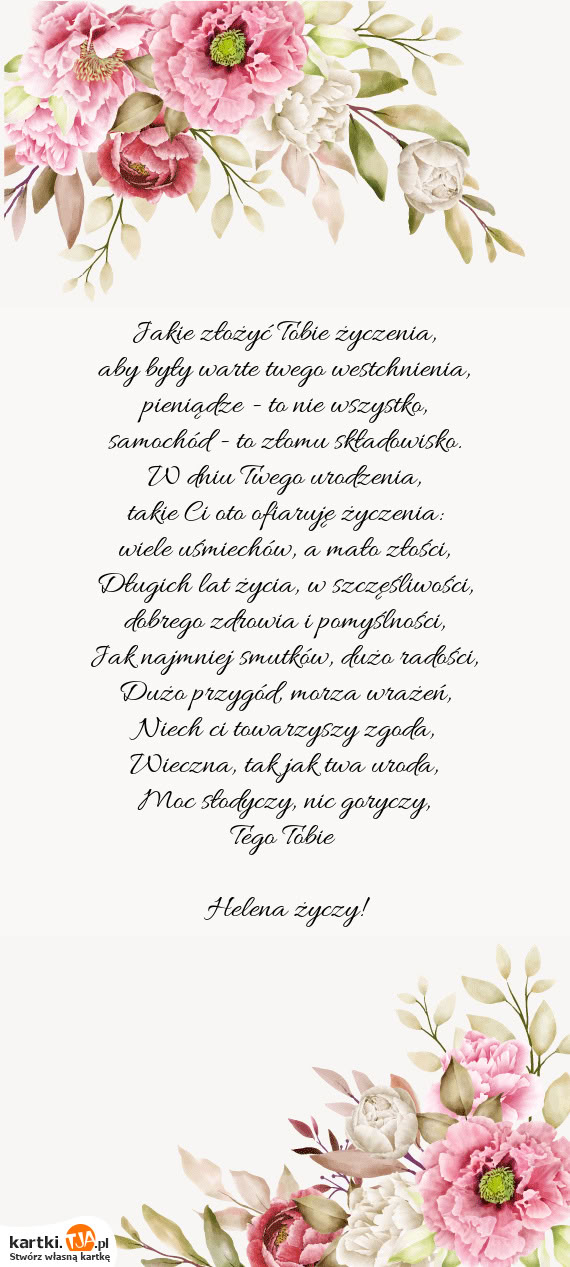 Jakie złożyć Tobie życzenia,
aby były warte twego westchnienia,
pieniądze - to nie wszystko,
samochód - to złomu składowisko.
W dniu Twego urodzenia,
takie Ci oto ofiaruję życzenia:
wiele uśmiechów, a mało złości,
Długich lat życia, w szczęśliwości,
dobrego zdrowia i pomyślności,
Jak najmniej smutków, dużo radości,
Dużo przygód, morza wrażeń,
Niech ci towarzyszy zgoda,
Wieczna, tak jak twa uroda,
Moc słodyczy, nic goryczy,
Tego Tobie
Helena życzy!
kartki.TJA.pl
Stwórz własną kartkę